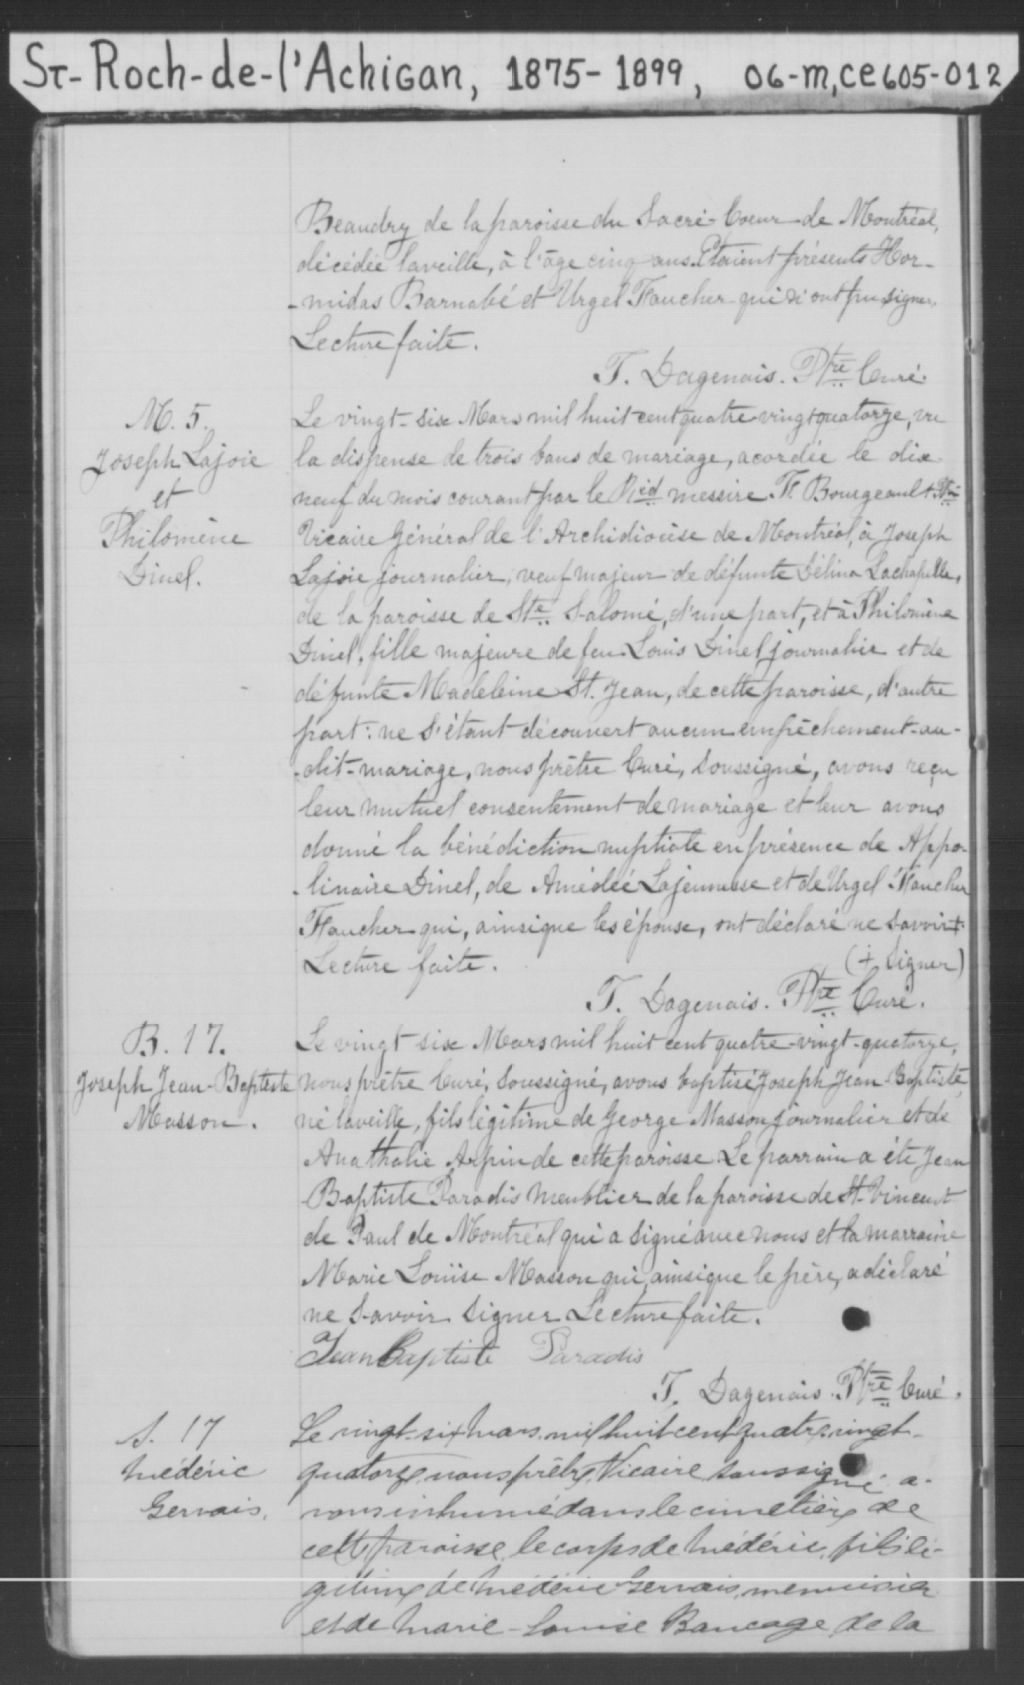 St-Roch-de-l'Achigan, 1875-1899, 06-M,CE605-012
Beaudry de la paroisse du Sacré-Coeur de Montréal,
décédée la veille, à l'âge cinq ans. Etaient présents Hor-
-midas Barnabé et Urgel Faucher qui n'ont pu signer.
Lecture faite.
T. Dagenais. Ptre Curé.
M. 5.
Joseph Lajoie
et
Philomène
Dinel.
Le vingt-six Mars mil huit cent quatre-vingt quatorze, vu
la dispense de trois bans de mariage, acordée le dix
neuf du mois courant par le Rèd messire F. Bourgeault Ptre
Vicaire Général de l'Archidiocèse de Montréal, à Joseph
Lajoie journalier, veuf majeur de défunte Délina Lachapelle,
de la paroisse de Ste Salomé, d'une part, et à Philomène
Dinel, fille majeure de feu Louis Dinel journalier et de
défunte Madeleine St. Jean, de cette paroisse, d'autre
part: ne s'étant découvert aucun empêchement au-
-dit-mariage, nous prêtre Curé, soussigné, avons reçu
leur mutuel consentement de mariage et leur avons
donné la bénédiction nuptiale en présence de Appo-
-linaire Dinel, de Amédée Lajeunesse et de Urgel Faucher
Faucher qui, ainsique les épouse, ont déclaré ne savoir +
Lecture faite. (+ signer)
T. Dagenais. Ptre Curé.
B. 17.
Joseph Jean-Baptiste
Masson.
Le vingt-six Mars mil huit cent quatre-vingt-quatorze,
nous prêtre Curé, soussigné, avons baptisé Joseph Jean-Baptiste,
né la veille, fils légitime de George Masson journalier et de
Anathalie Arpin de cette paroisse. Le parrain a été Jean
Baptiste Paradis meublier de la paroisse de St-Vincent
de Paul de Montréal qui a signé avec nous et la marraine
Marie Louise Masson qui, ainsique le père, a déclaré
ne savoir signer. Lecture faite.
Jean Baptiste Paradis
T. Dagenais. Ptre Curé.
S. 17
Médéric
Gervais.
Le vingt-six mars, mil huit cent quatre-vingt-
quatorze nous prêtre, Vicaire soussigné a-
vons inhumé dans le cimetière de
cette paroisse, le corps de Médéric, fils lé-
gitime de Médéric Gervais, menuisier
et de Marie-Louise Bancage de la